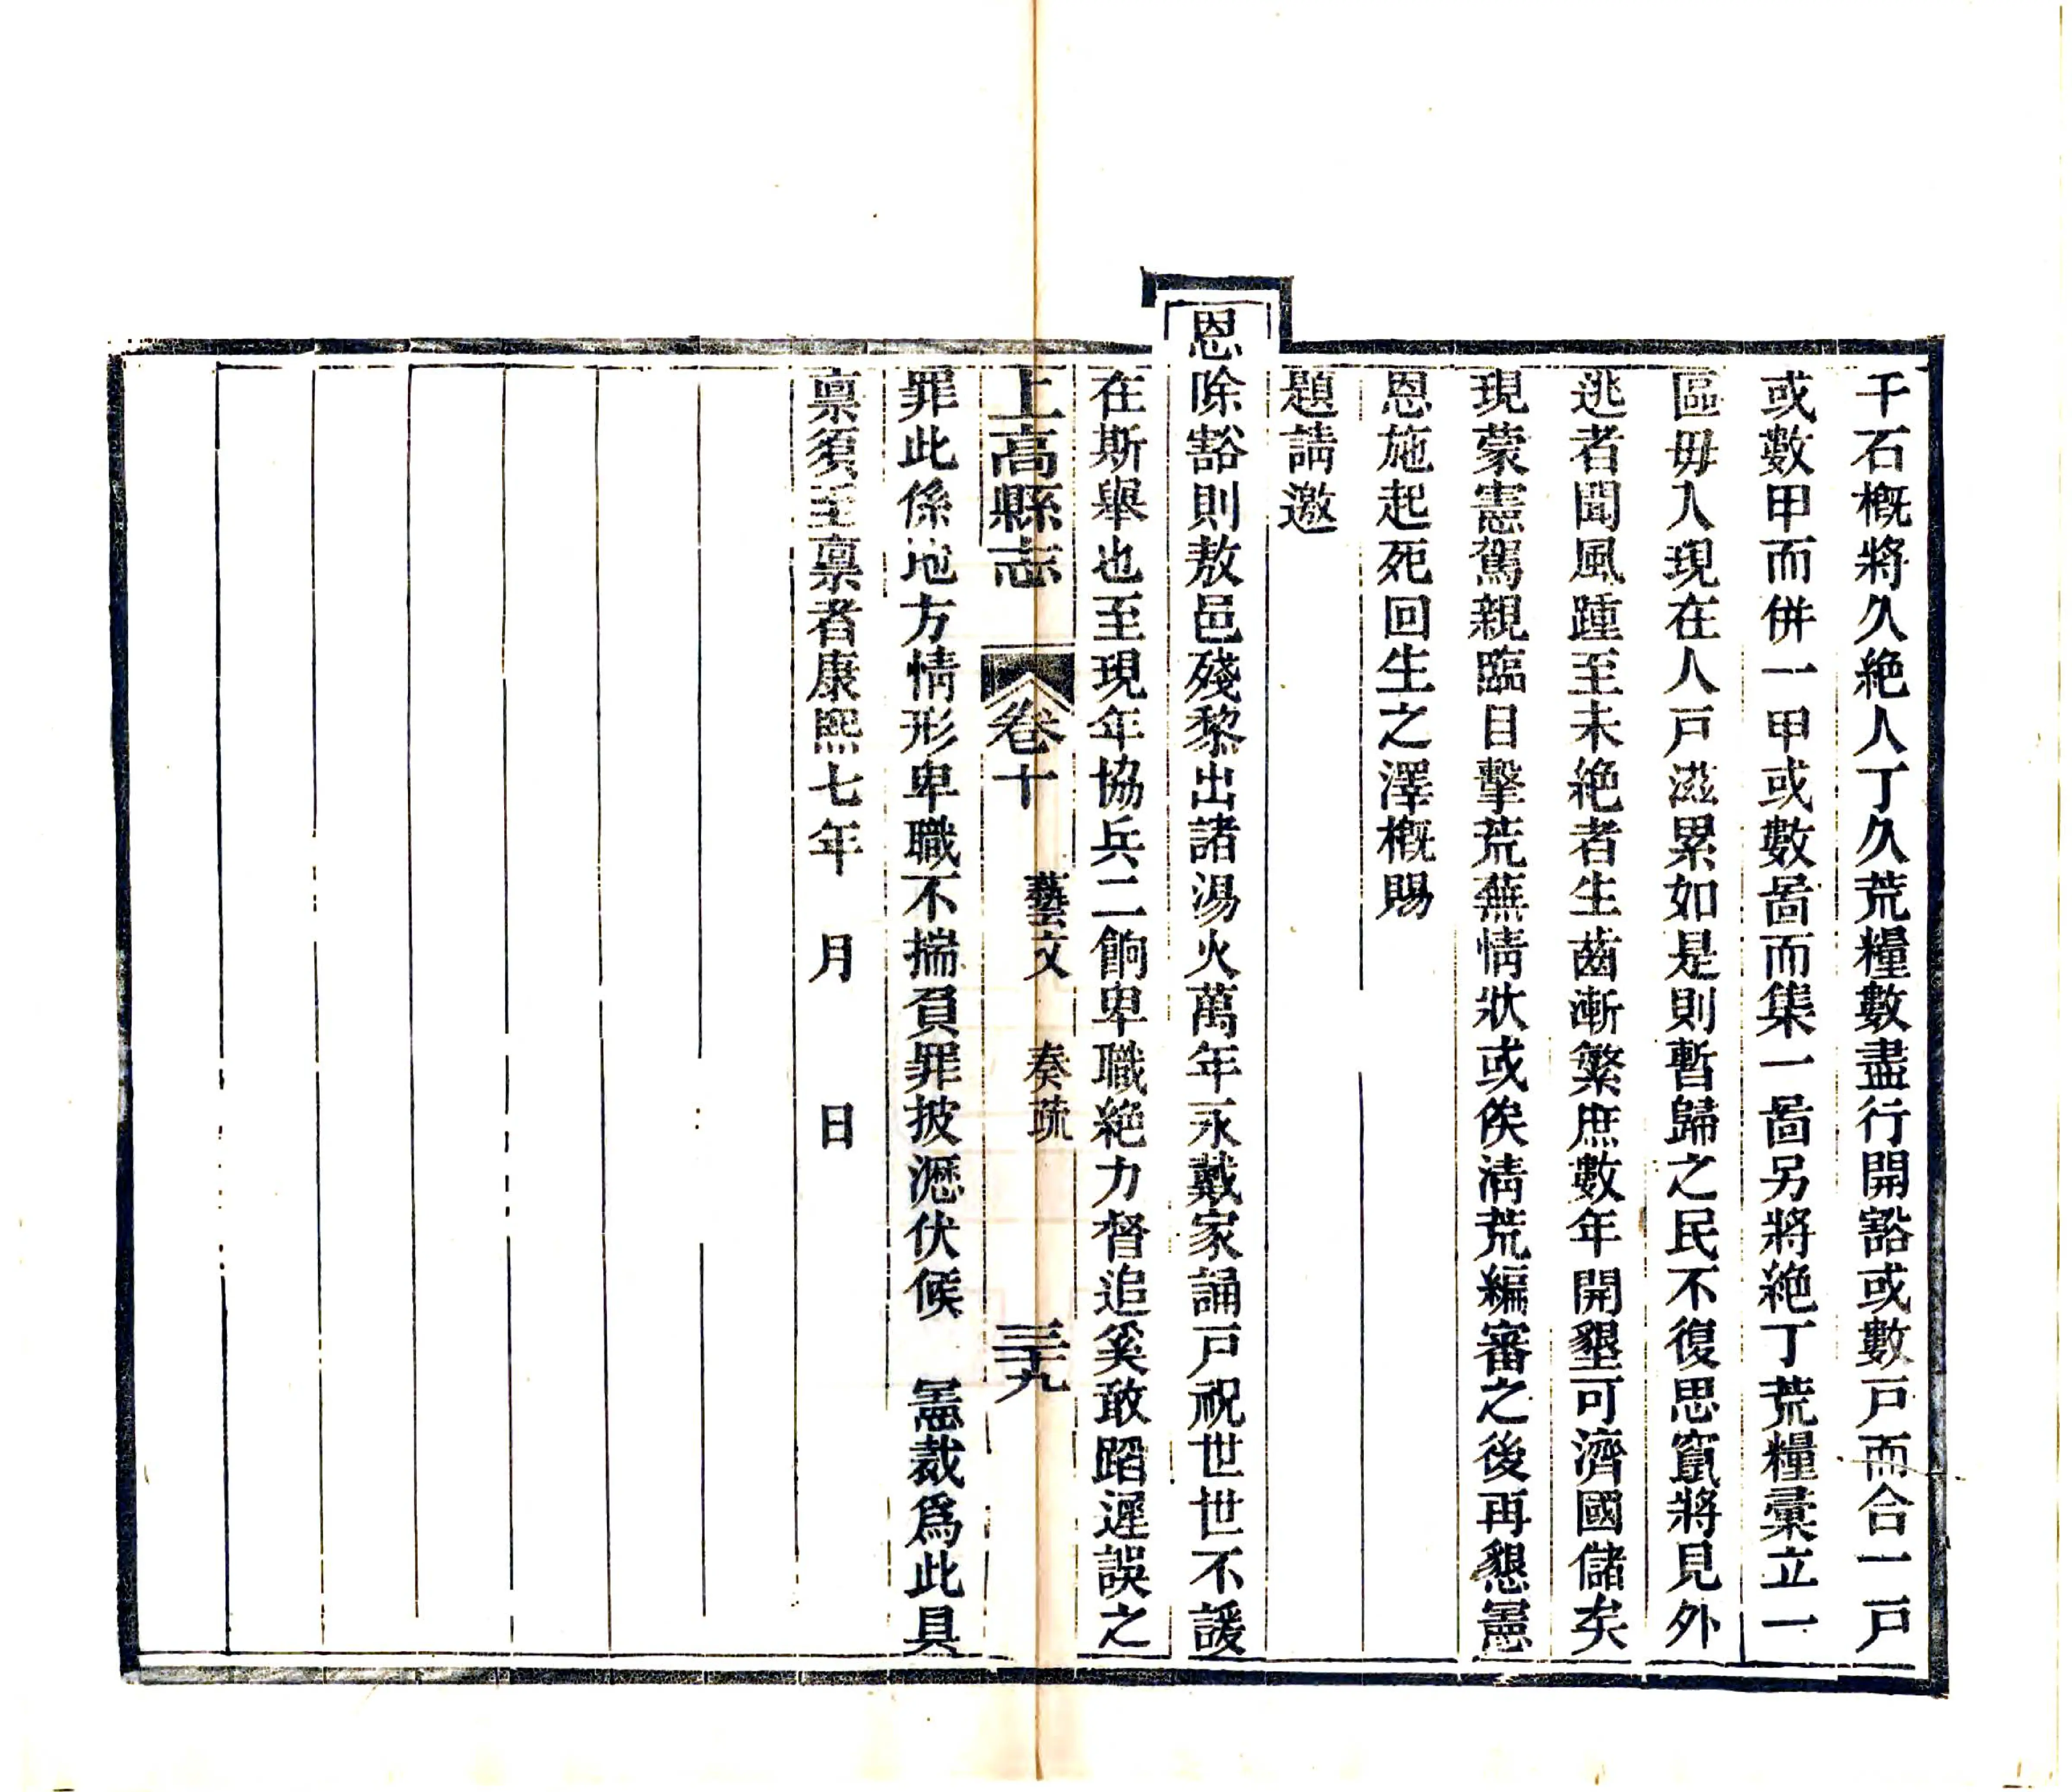 千石槪將久絶人丁久荒糧數盡行開豁或數戸而合一戸
或數甲而併一甲或數啚而集一啚另將絶丁荒糧彚立一
區毋入現在人戸滋累如是則暫歸之民不復思竄將見外
逃者聞風踵至未絶者生齒漸繁庶數年開墾可濟國儲矣
現蒙憲駕親臨目擊荒蕪情狀或俟淸荒編審之後再懇憲
恩施起死回生之澤槪賜
題請邀
恩除豁則敖邑殘黎出諸湯火萬年永戴家誦戸祝世世不諼
在斯舉也至現年協兵二餉卑職絶力督追奚敢蹈遲誤之
上高縣志 卷十 藝文 奏疏 三十九
罪此係地方情形卑職不揣負罪披瀝伏候 憲裁爲此具
稟須至稟者康熙七年 月 日